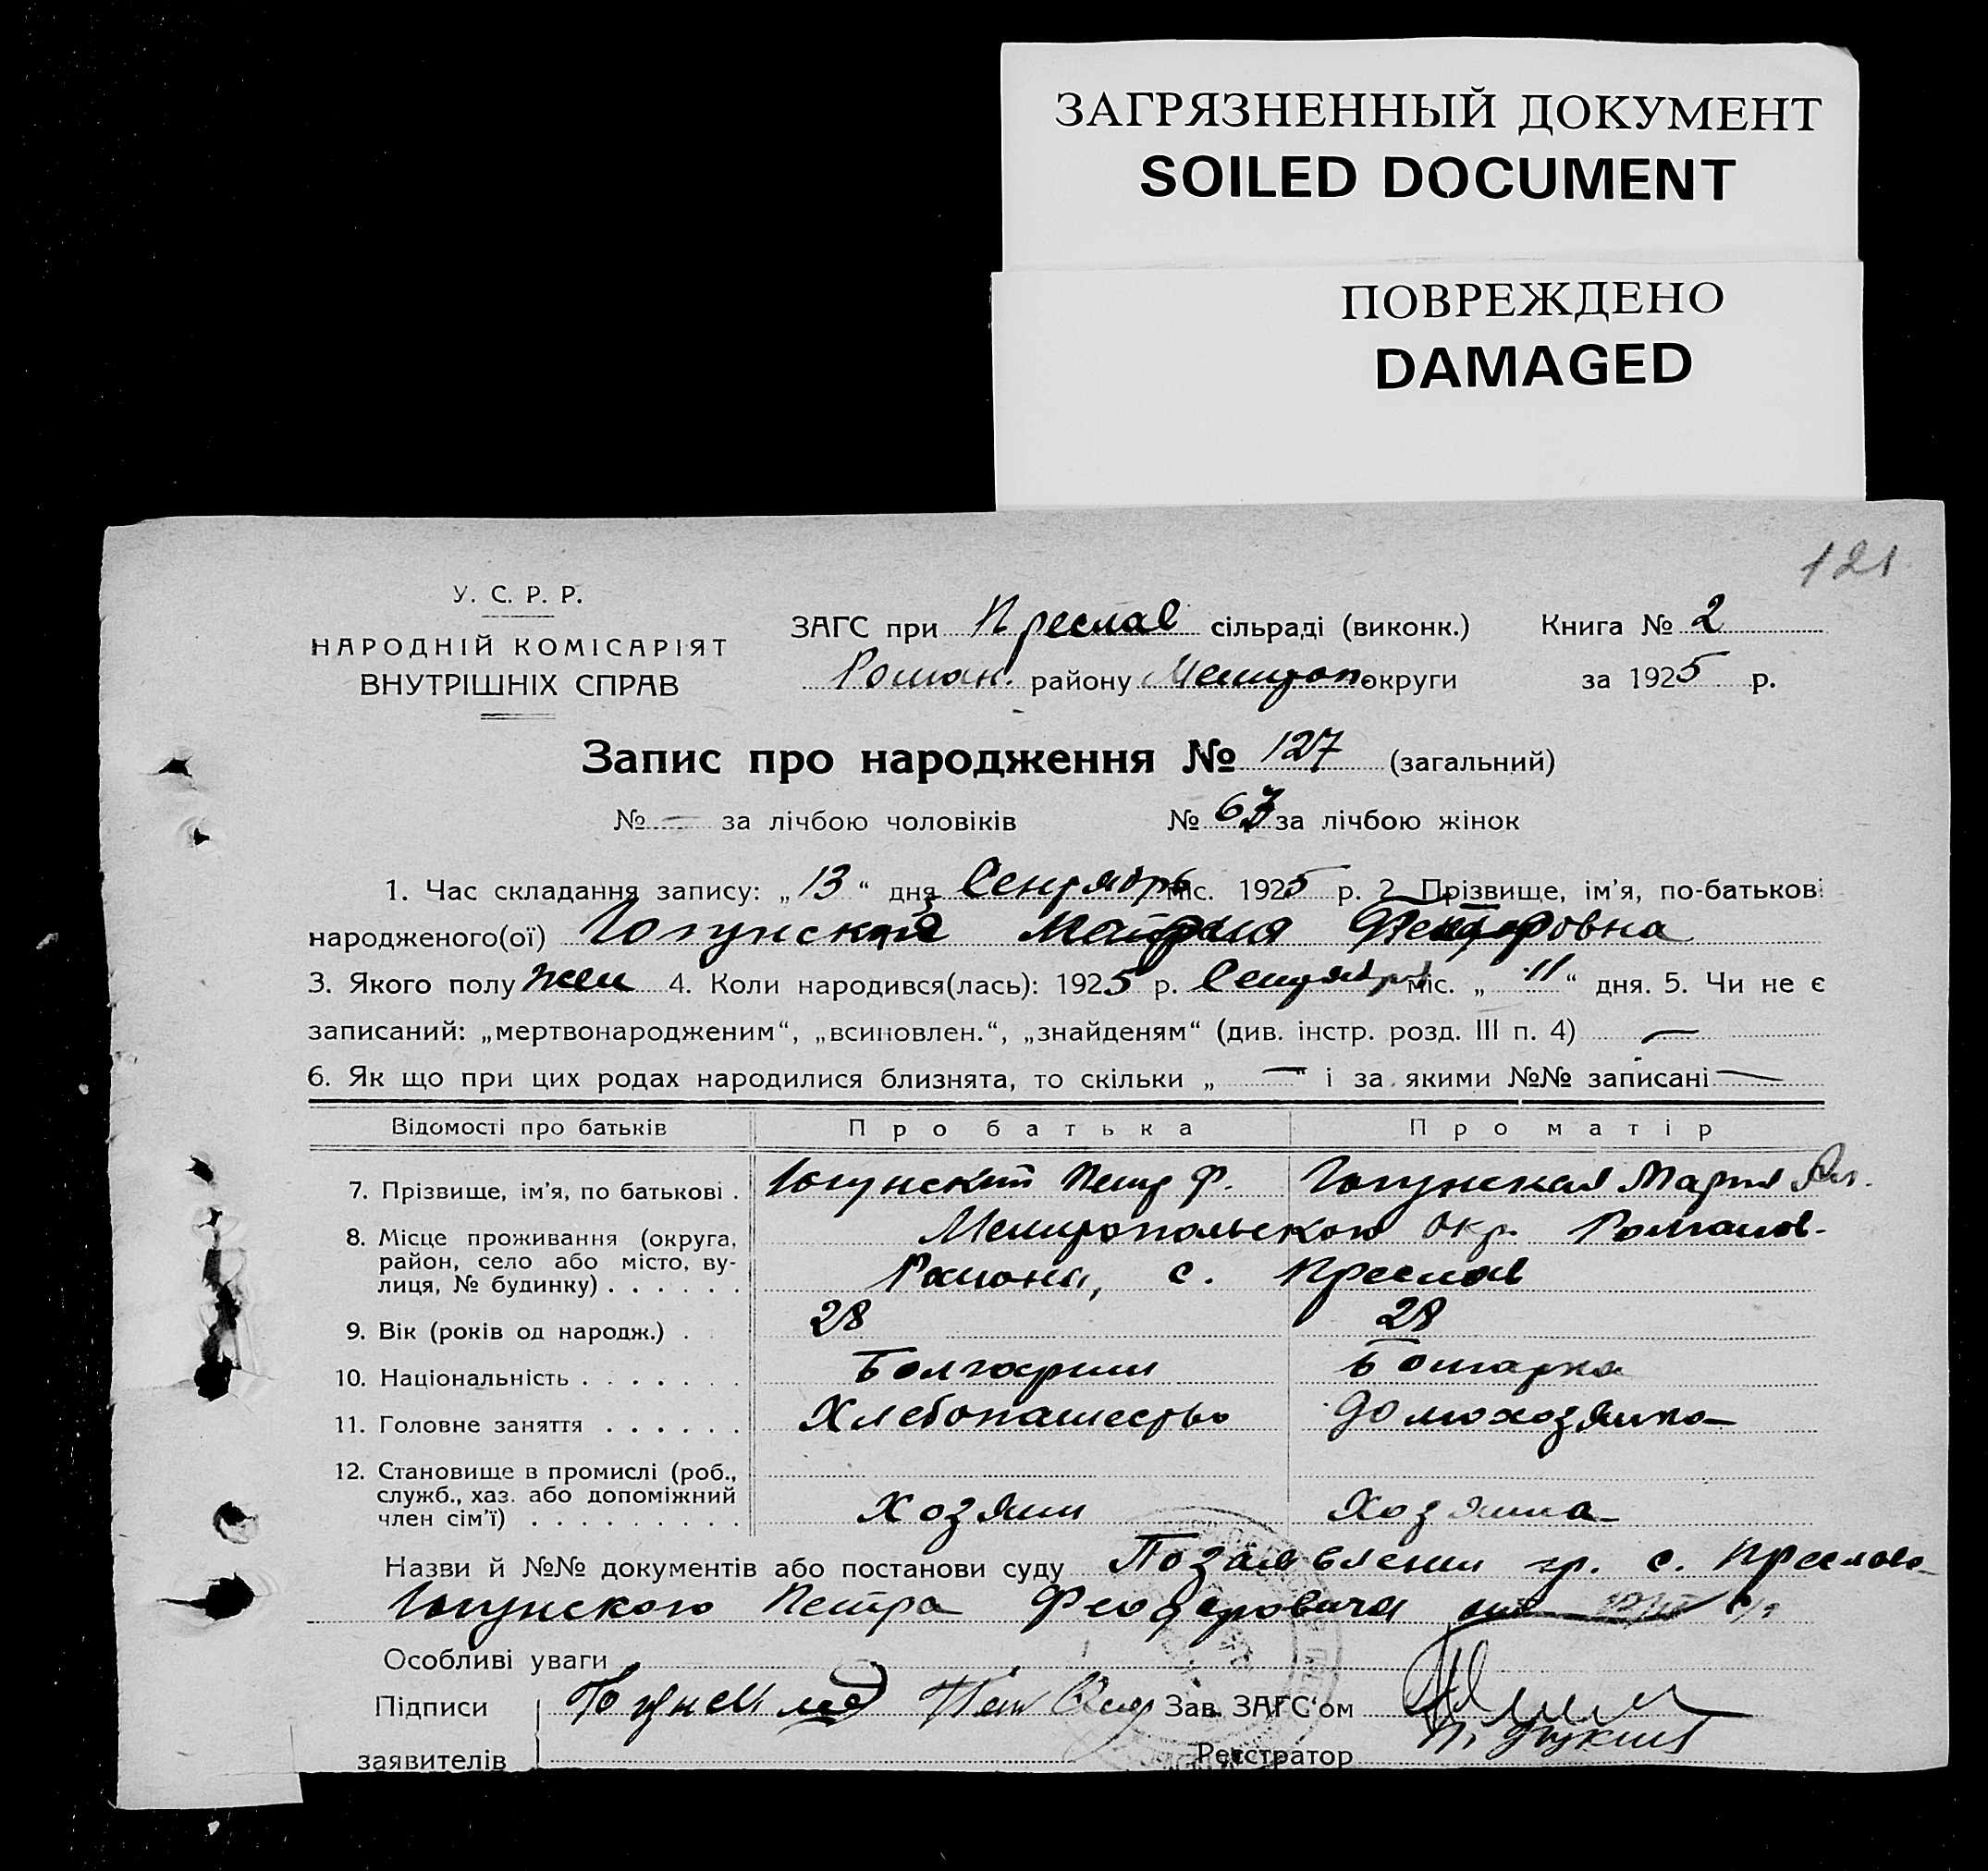 ЗАГРЯЗНЕННЫЙ ДОКУМЕНТ
SOILED DOCUMENT
ПОВРЕЖДЕНО
DAMAGED
121
У. С. Р. Р.
НАРОДНІЙ КОМІСАРІЯТ
ВНУТРІШНІХ СПРАВ
ЗАГС при Преслав сільраді (виконк.) Книга № 2
Роман. району Мелитоп. округи за 1925 р.
Запис про народження № 127 (загальний)
№ — за лічбою чоловіків № 67 за лічбою жінок
1. Час складання запису: „ 13 “ дня Сентябрь міс. 1925 р. 2. Прізвище, ім'я, по-батькові
народженого(ої)
3. Якого полу жен 4. Коли народився(лась): 1925 р. Сентября міс. „ 11 “ дня. 5. Чи не є
записаний: „мертвонародженим“, „всиновлен.“, „знайденям“ (див. інстр. розд. III п. 4) —
6. Як що при цих родах народилися близнята, то скільки „ — “ і за якими №№ записані —
Відомості про батьків Про батька Про матір
7. Прізвище, ім'я, по батькові . Гогунский Петр Ф. Гогунская Мария
8. Місце проживання (округа, район, село або місто, вулиця, № будинку) . . . . . . Мелитопольского Окр. Романов-
Района, с. Преслав
9. Вік (років од народж.) . 28 28
10. Національність . . . . . . . Болгарин Болгарка
11. Головне заняття . . . . . . Хлебопашество домохозяйка
12. Становище в промислі (роб., служб., хаз. або допоміжний член сім'ї) . . . . . . . . . Хозяин Хозяйка
Назви й №№ документів або постанови суду По заявлении гр. с. Преслав
Гогунского Петра Феодоровича
Особливі уваги
Підписи Зав. ЗАГС'ом
заявителів Реєстратор